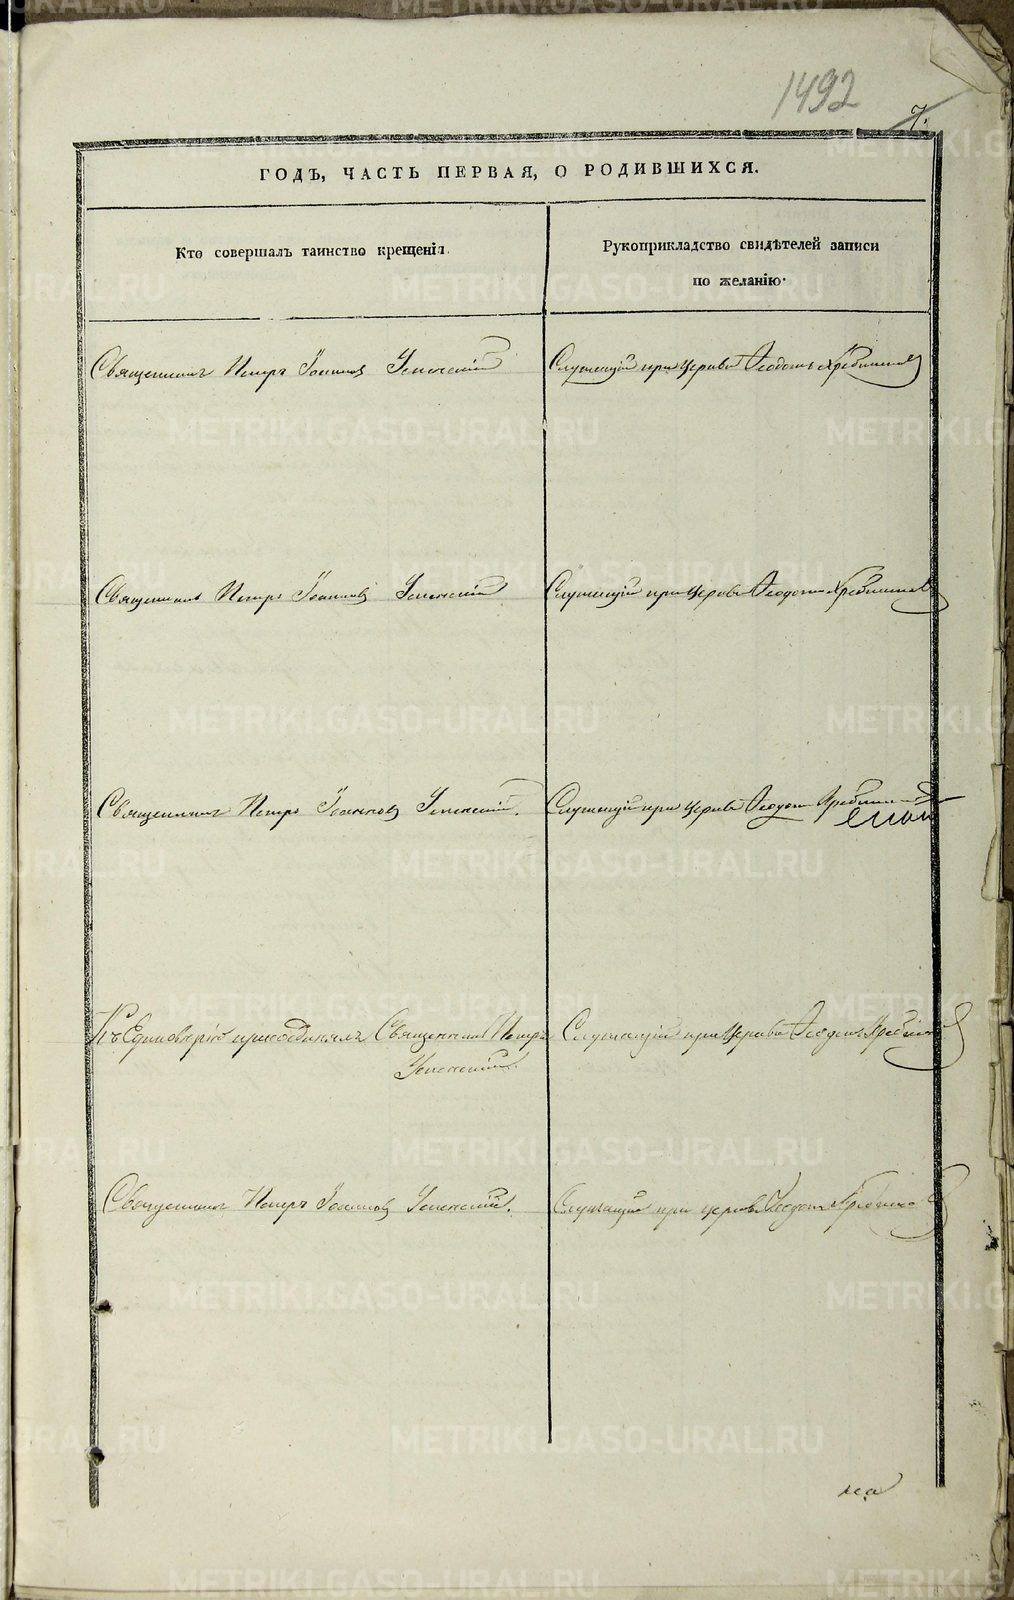 1492
7.
ГОДЪ, ЧАСТЬ ПЕРВАЯ, О РОДИВШИХСЯ.
Кто совершалъ таинство крещенія.
Рукоприкладство свидѣтелей записи
по желанію.
Священникъ Петръ Іоанновъ Успенскій
Служащій при церкви Ѳеодотъ
Священникъ Петръ Іоанновъ Успенскій
Служащій при церкви Ѳеодотъ
Священникъ Петръ Іоанновъ Успенскій.
Служащій при церкви Ѳеодотъ
Къ Единовѣрію присоединялъ Священникъ Петръ
Успенскій.
Служащій при церкви Ѳеодотъ
Священникъ Петръ Іоанновъ Успенскій.
Служащій при церкви Ѳеодотъ
METRIKI.GASO-URAL.RU